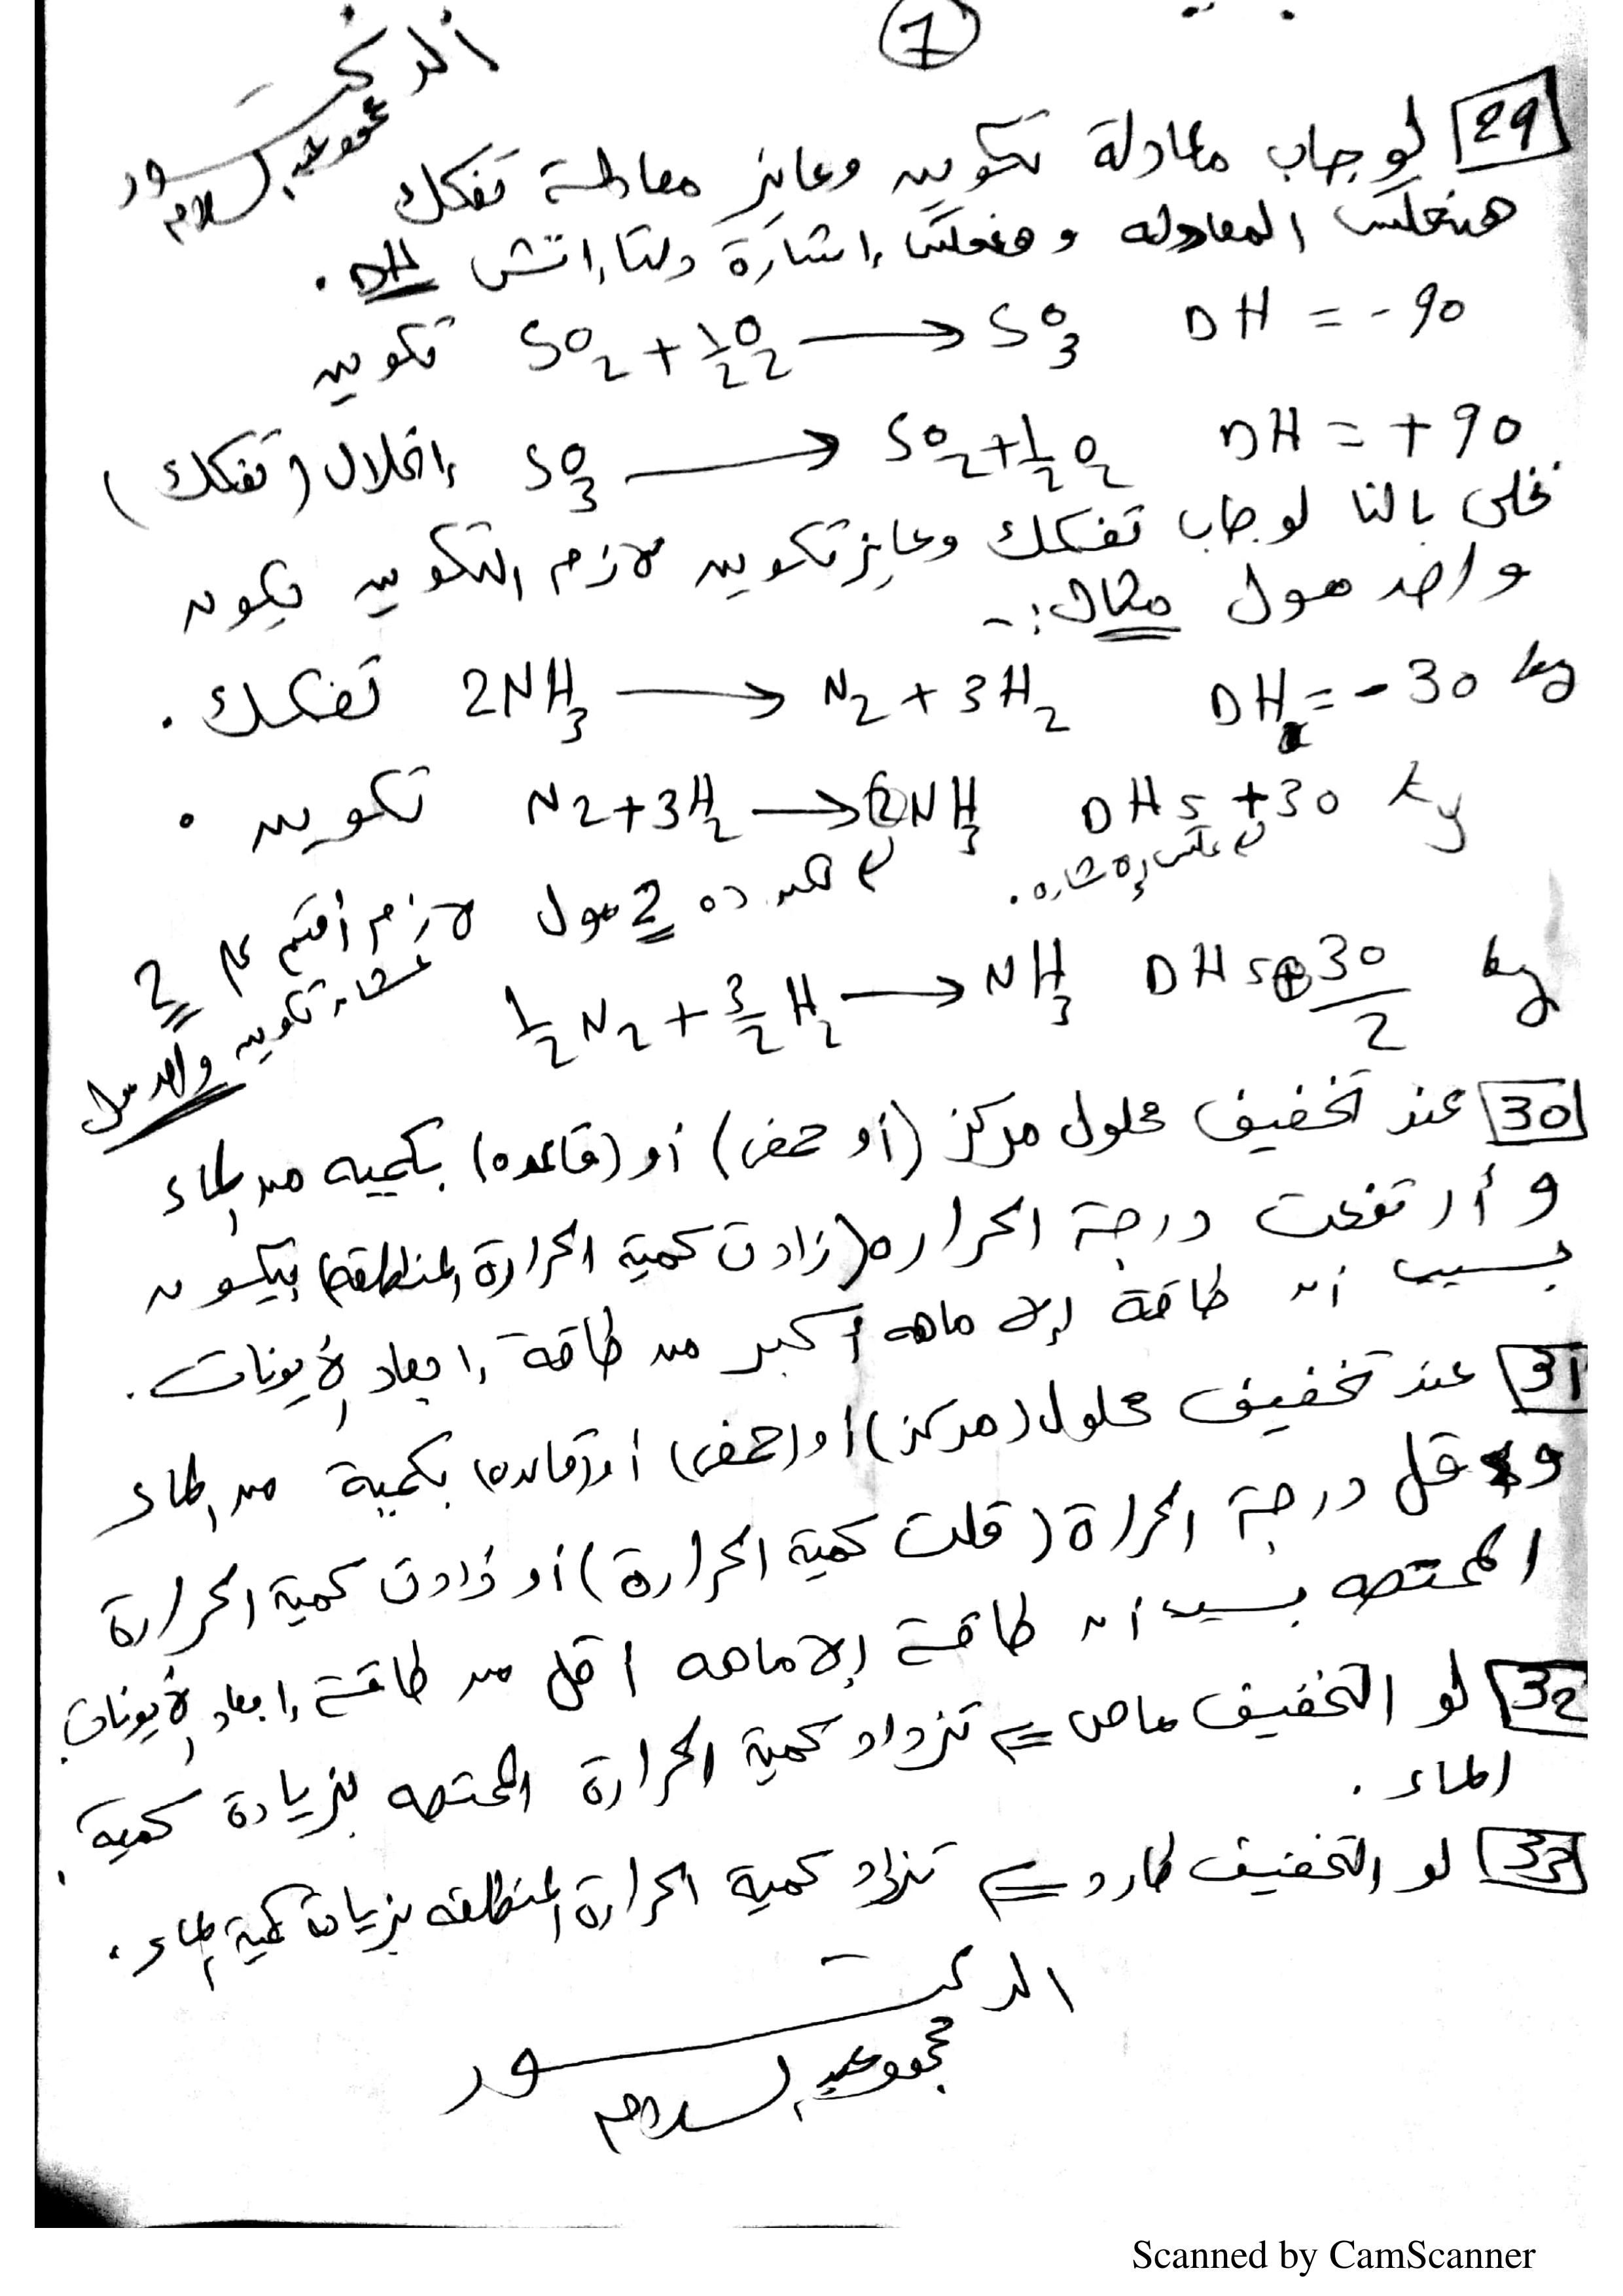 7
الدكتور
محمود عبد السلام
29 لو جاب معادلة تكوين وعايز معادلة تفكك
هنعكس المعادله وهنعكس إشارة دلتا إتش DH .
SO2 + 1/2 O2 ⟶ SO3 DH = -90 تكوين
SO3 ⟶ SO2 + 1/2 O2 DH = +90 إنحلال (تفكك)
نخلى بالنا لو جاب تفكك وعايز تكوين لازم التكوين يكون
واحد مول مثال :-
2NH3 ⟶ N2 + 3H2 DH = -30 kj تفكك .
N2 + 3H2 ⟶ 2NH3 DH = +30 kj تكوين .
عكس إشاره .
لكن ده 2 مول لازم أقسم على 2
عشان تكوين واحد مول
1/2 N2 + 3/2 H2 ⟶ NH3 DH = + 30/2 kj
30 عند تخفيف محلول مركز (أو حمض) أو (قاعده) بكميه من الماء
وأرتفعت درجة الحراره (زادت كمية الحرارة المنطلقة) بيكون
بسبب أن طاقة الإماهه أكبر من طاقة إبعاد الأيونات .
31 عند تخفيف محلول (مركز) أو (حمض) أو (قاعده) بكمية من الماء
وقل درجة الحرارة (قلت كمية الحرارة) أو زادت كمية الحرارة
الممتصه بسبب أن طاقة الإماهه أقل من طاقة إبعاد الأيونات
32 لو التخفيف ماص ⇐ تزداد كمية الحرارة الممتصه بزيادة كمية
الماء .
33 لو التخفيف طارد ⇐ تزداد كمية الحرارة المنطلقه بزيادة كمية الماء .
الدكتور
محمود عبد السلام
Scanned by CamScanner